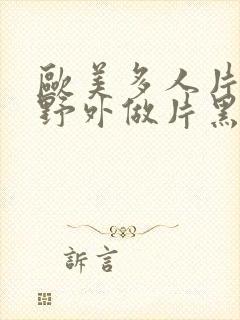 歐美多人片
野外做片黑
訴言